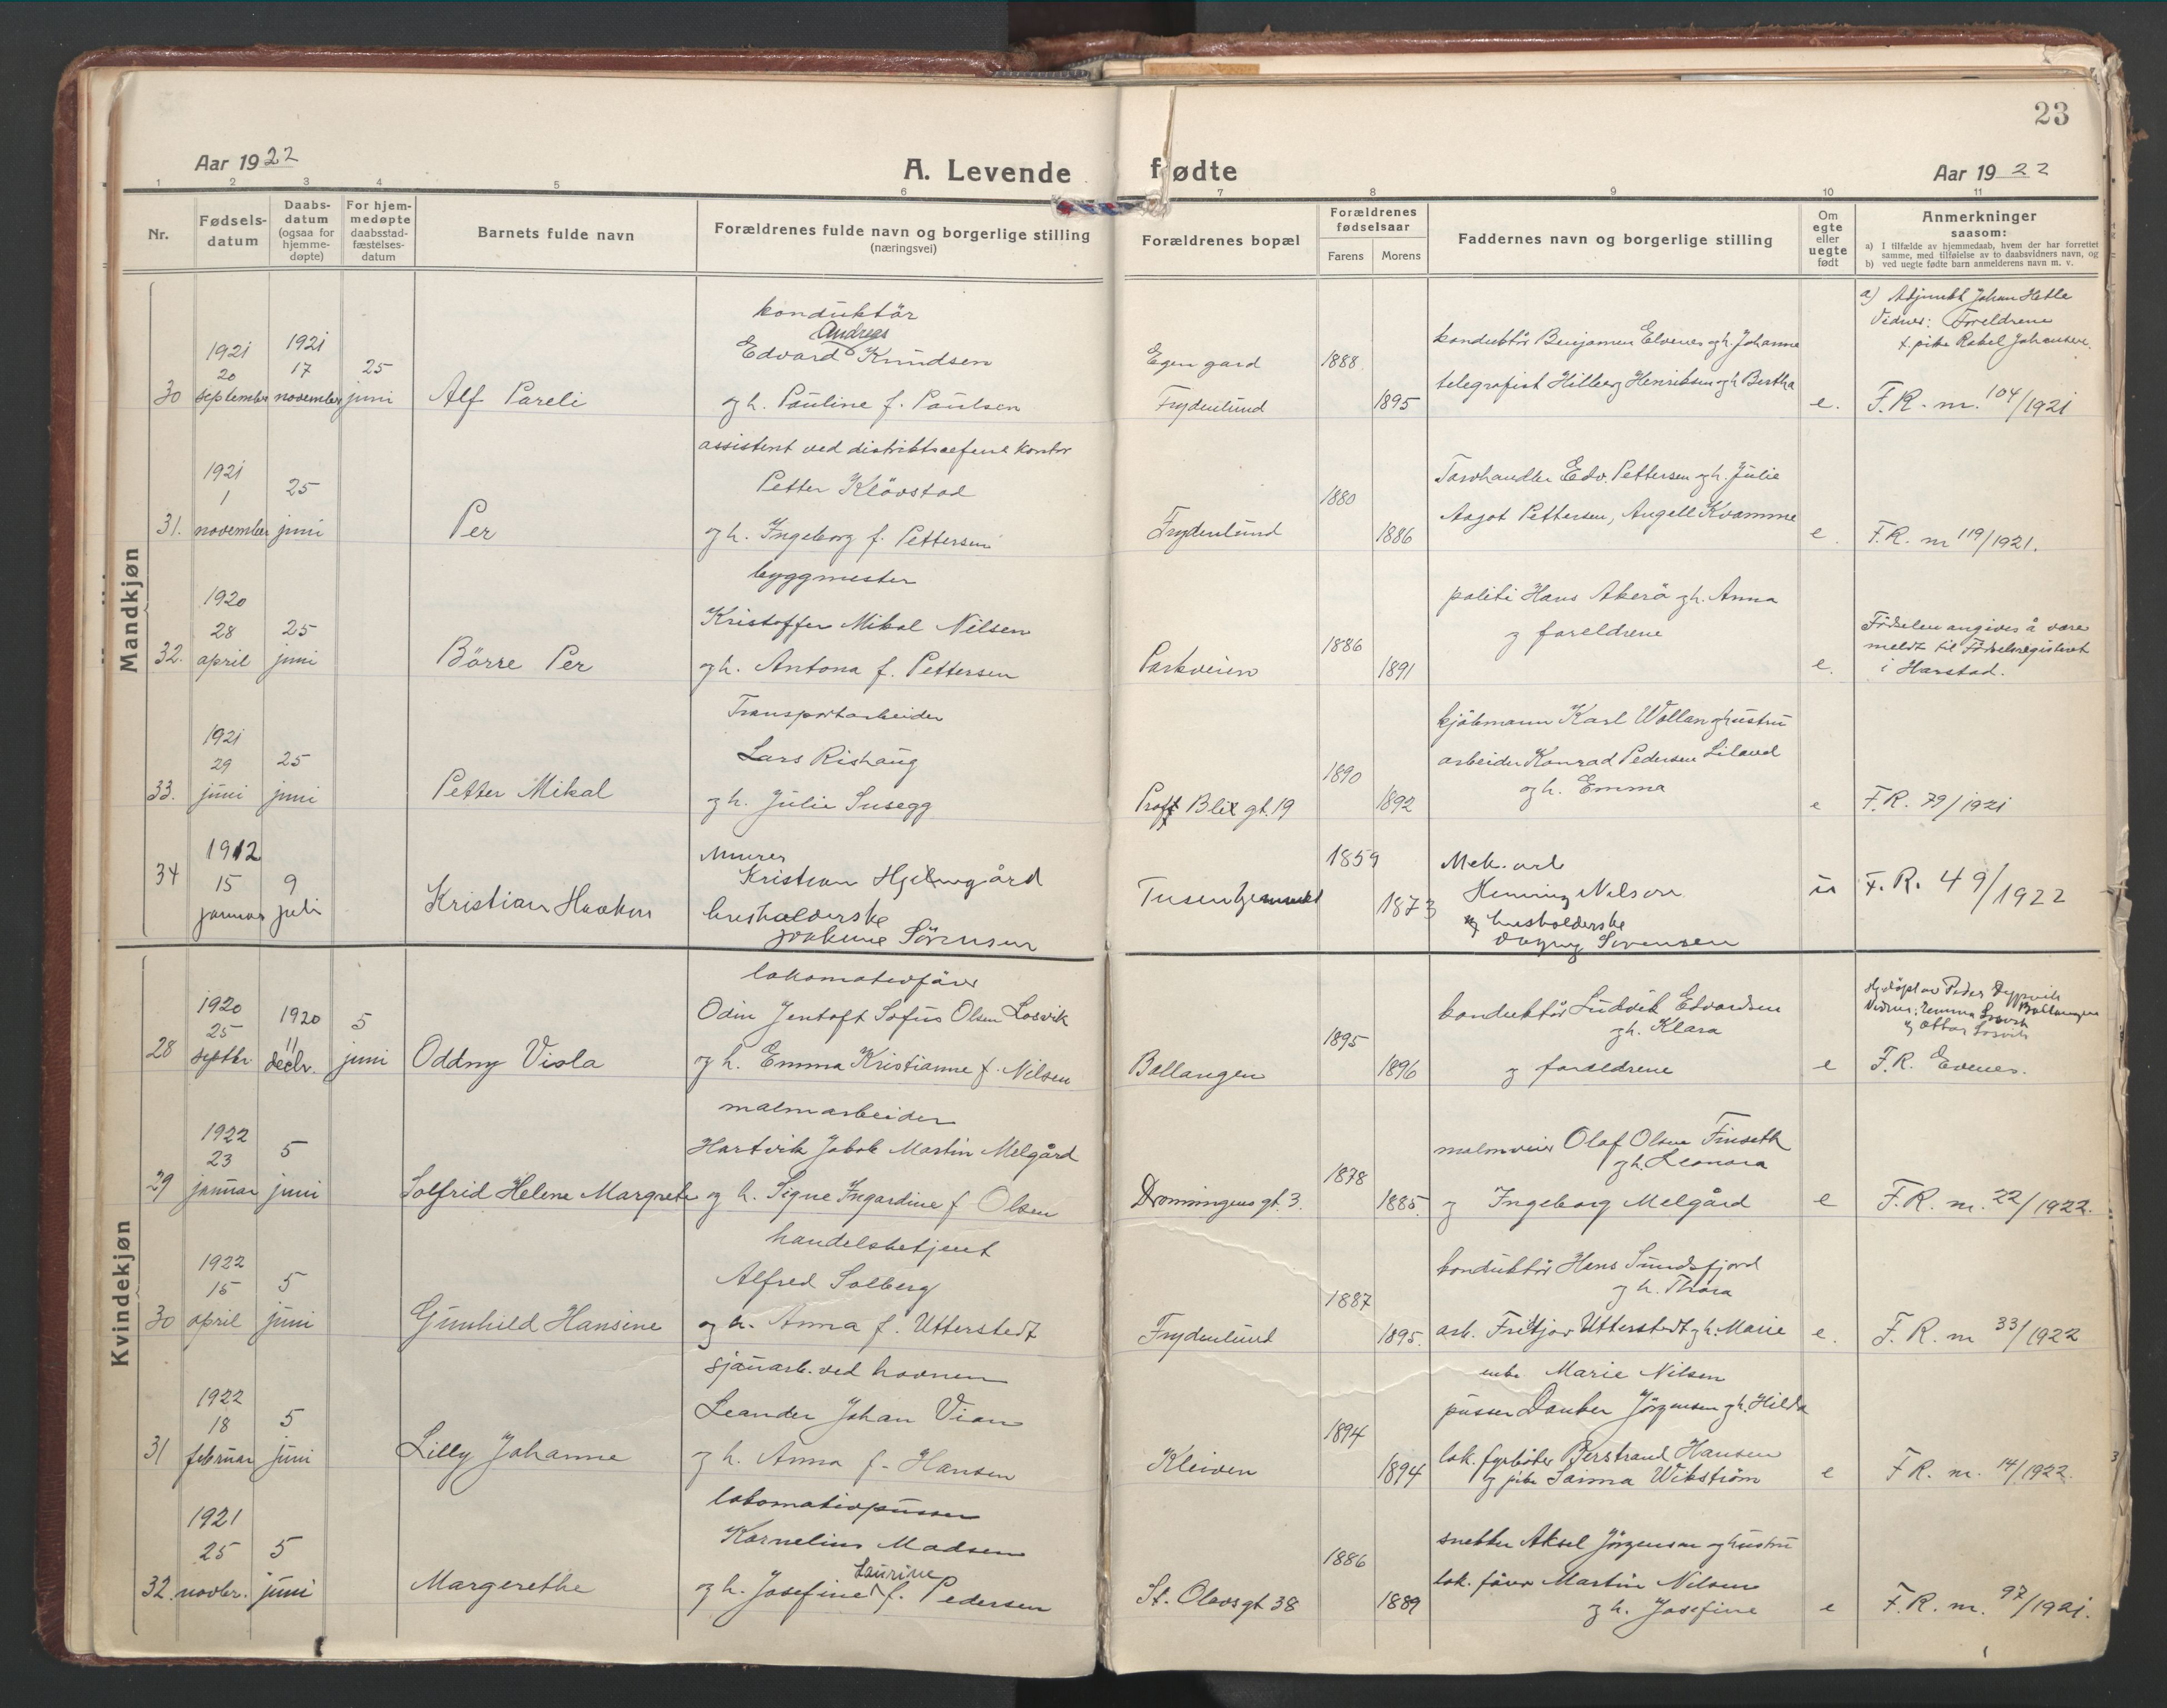 23
Aar 1922
A. Levende fødte
Aar 1922
1 2 3 4 5 6 7 8 9 10 11
Nr.
Fødsels-
datum
Daabs-
datum
(ogsaa for
hjemme-
døpte)
For hjem-
medøpte
daabsstad-
fæstelses-
datum
Barnets fulde navn
Forældrenes fulde navn og borgerlige stilling
(næringsvei)
Forældrenes bopæl
Forældrenes
fødselsaar
Farens
Morens
Faddernes navn og borgerlige stilling
Om
egte
eller
uegte
født
Anmerkninger
saasom:
a) I tilfælde av hjemmedaab, hvem der har forrettet
samme, med tilføielse av to daabsvidners navn, og
b) ved uegte fødte barn anmelderens navn m. v.
Mandkjøn
30
1921
20
september
1921
17
november
25
juni
Alf Pareli
konduktör
Andreas
Edvard Knudsen
og h. Pauline f. Paulsen
Egen gard
Frydenlund
1888
1895
konduktör Benjamin Elvenes og h. Johanne
telegrafist Hilberg Henriksen og h. Bertha
e.
a) Adjunkt Johan Hetle
Vidner: Foreldrene
+ pike Rakel Johansen.
F.R. nr. 104/1921
31.
1921
1
november
25
juni
Per
assistent ved distriktschefens kontor
Petter Klövstad
og h. Ingeborg f. Pettersen
Frydenlund
1880
1886
Edv. Pettersen og h. Julie
Aagot Pettersen, Angell Kvamme
e.
F.R. nr 119/1921.
32.
1920
28
april
25
juni
Börre Per
byggmester
Kristoffer Mikal Nilsen
og h. Antona f. Pettersen
Parkveien
1886
1891
politi Hans Akerö og h. Anna
og foreldrene
e.
Födselen angives å være
meldt til Födselsregisteret
i Harstad.
33.
1921
29
juni
25
juni
Petter Mikal
Transportarbeider
Lars Rishaug
og h. Julie Susegg
Proff Blix gt. 19
1890
1892
kjöbmann Karl Wollan og hustru
arbeider Konrad Pedersen Liland
og h. Emma
e
F.R. 79/1921
34
1912
15
januar
9
juli
Kristian Haakon
Murer
Kristian Hjelmgård
husholderske
Sörensen
1859
1873
Mek. arb
Henning Nilsen
og husholderske
Dagny Sörensen
u
F.R. 49/1922
Kvindekjøn
28
1920
25
septbr.
1920
11
decbr.
5
juni
Oddny Viola
lokomotivförer
Odin Jentoft Sofus Olsen Losvik
og h. Emma Kristianne f. Nilsen
Ballangen
1895
1896
konduktör Ludvik Edvardsen
og h. Klara
og foreldrene
e
Hj.döpt av Peder Dypvik
Ballangen
Vidner: Emma Losvik
og Ottar Losvik
F.R. Evenes.
29
1922
23
januar
5
juni
Solfrid Helene Margrete
malmarbeider
Hartvik Jakob Martin Melgård
og h. Signe Ingardine f Olsen
Dronningens gt. 3.
1878
1885.
malmveier Olaf Olsen Finseth
og h. Leonora
og Ingeborg Melgård
e
F.R. nr. 22/1922.
30
1922
15
april
5
juni
Gunhild Hansine
handelsbetjent
Alfred Solberg
og h. Anna f. Utterstedt
Frydenlund
1887
1895.
konduktör Hans Sundsfjord
og h. Thora
arb. Fritjov Utterstedt og h. Marie
e.
F.R. nr 33/1922
31
1922
18
februar
5
juni
Lilly Johanne
sjauarb. ved havnen
Leander Johan Vian
og h. Anna f. Hansen
Kleiven
1894
1894
enke Marie Nilsen
pusser Jörgensen og h. Hilda
lok. fyrböter Berstrand Hansen
og pike Saima Wikström
e
F.R. nr. 14/1922.
32.
1921
25
novbr.
5
juni
Margerethe
lokomotivpusser
Kornelius Madsen
Laurine
og h. Josefine f. Pedersen
St. Olavsgt 38
1886
1889
snekker Aksel Jörgensen og hustru
lok. förer Martin Nilsen
og h. Josefine
e
F.R. nr. 97/1921.